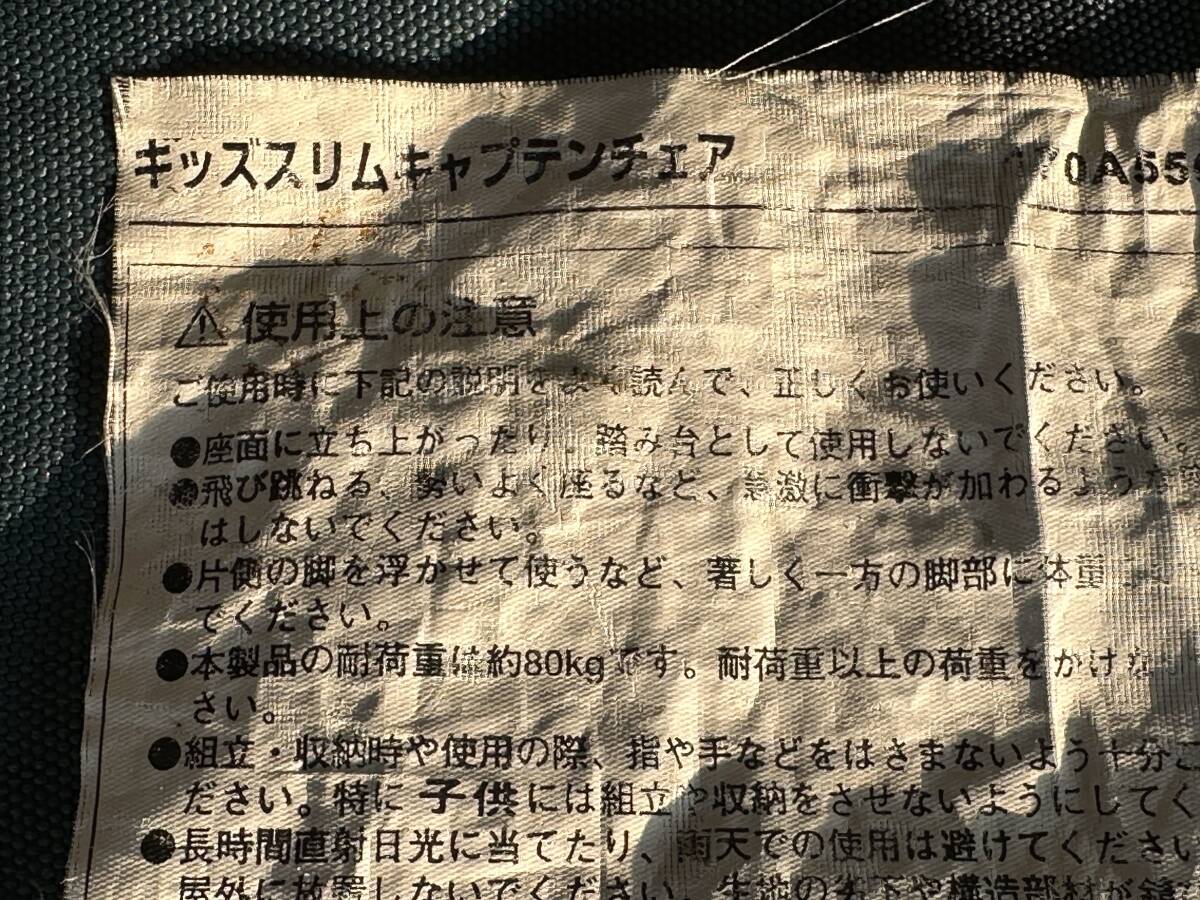 キッズスリムキャプテンチェア 70A55
⚠使用上の注意
ご使用時に下記の説明をよく読んで、正しくお使いください。
●座面に立ち上がったり、踏み台として使用しないでください。
●飛び跳ねる、勢いよく座るなど、急激に衝撃が加わるような
はしないでください。
●片側の脚を浮かせて使うなど、著しく一方の脚部に体重
でください。
●本製品の耐荷重は約80kgです。耐荷重以上の荷重をかけな
さい。
●組立・収納時や使用の際、指や手などをはさまないよう十分ご
ださい。特に子供には組立や収納をさせないようにしてく
●長時間直射日光に当てたり、雨天での使用は避けてください
屋外に放置しないでください。生地の劣下や構造部材が錆